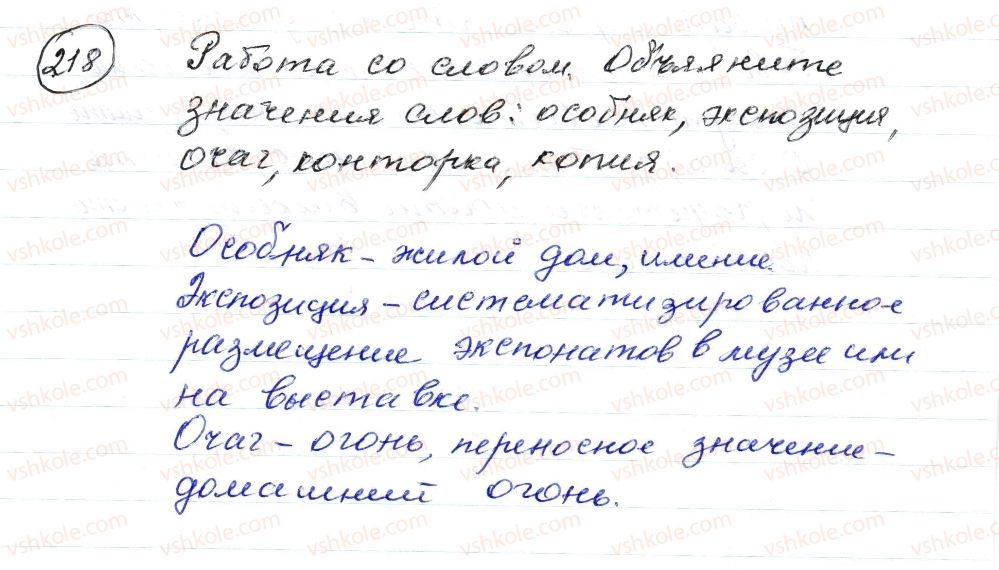 218 Работа со словом. Объясните
значения слов: особняк, экспозиция,
очаг, конторка, копия.
Особняк – жилой дом, имение.
Экспозиция – систематизированное
размещение экспонатов в музее или
на выставке.
Очаг – огонь, переносное значение –
домашний огонь.